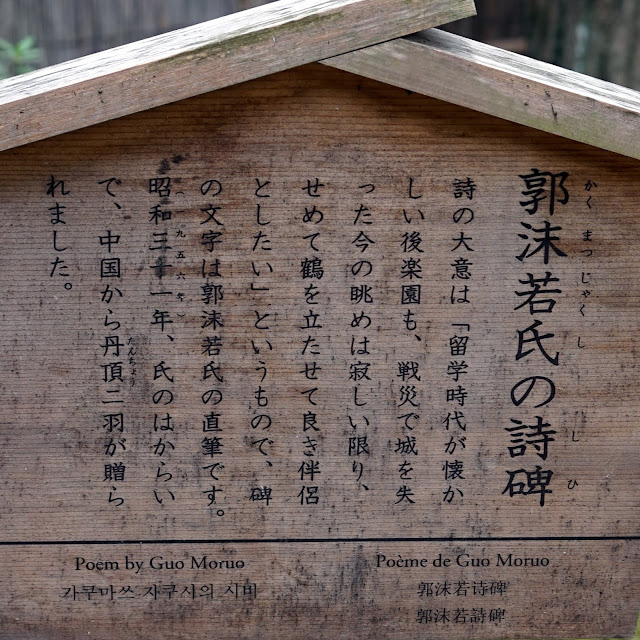 かく まつ じゃく し しひ
郭沫若氏の詩碑
詩の大意は「留学時代が懐か
しい後楽園も、戦災で城を失
った今の眺めは寂しい限り、
せめて鶴を立たせて良き伴侶
としたい」というもので、碑
の文字は郭沫若氏の直筆です。
(一九五六年)
昭和三十一年、氏のはからい
たんちょう
で、中国から丹頂二羽が贈ら
れました。
Poem by Guo Moruo
가쿠마쓰 자쿠시의 시비
Poème de Guo Moruo
郭沫若诗碑
郭沫若詩碑